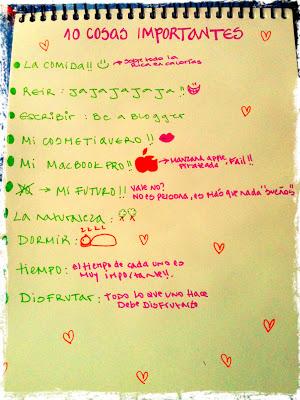 10 COSAS IMPORTANTES
LA COMIDA!! → Sobre todo la rica en calorías
REIR: JAJAJAJAJA!!
Escribir: Be a Blogger
Mi COSMETIQUERO!!
Mi MACBOOK PRO!! → MANZANA APPLE PIRATEADA, FAIL!!
→ Mi FUTURO!! VALE NO?
NO ES PERSONA, ES MÁS QUE NADA "SUEÑOS"
LA NATURALEZA:
DORMIR: ZZZZ
TIEMPO: el tiempo de cada uno es
MUY IMPORTANTE!!.
DISFRUTAR: TODO LO QUE UNO HACE
DEBE DISFRUTARLO